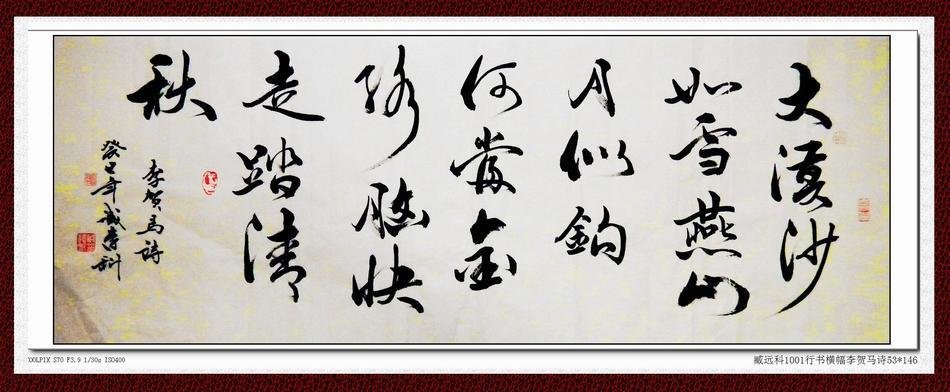 大漠沙
如雪燕山
月似鈎
何當金
络腦快
走踏清
秋
李贺马詩
癸巳年臧远科
OOLPIX S70 F3.9 1/30s ISO400
臧远科1001行书横幅李贺马诗53*146